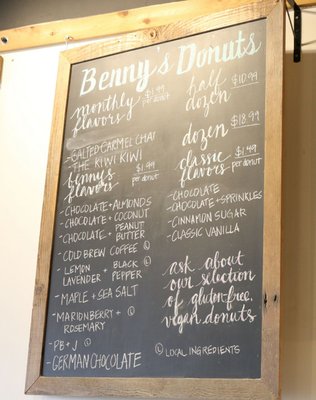 Benny's Donuts
monthly flavors $1.99 per donut
- SALTED CARMEL CHAI
- THE KIWI KIWI
bennys flavors $1.99 per donut
- CHOCOLATE + ALMONDS
- CHOCOLATE + COCONUT
- CHOCOLATE + PEANUT BUTTER
- COLD BREW COFFEE Ⓛ
- LEMON LAVENDER + BLACK PEPPER Ⓛ
- MAPLE + SEA SALT
- MARIONBERRY + ROSEMARY Ⓛ
- PB + J Ⓛ
- GERMAN CHOCOLATE
half dozen $10.99
dozen $18.99
classic flavors $1.49 per donut
- CHOCOLATE
- CHOCOLATE + SPRINKLES
- CINNAMON SUGAR
- CLASSIC VANILLA
ask about
our selection
of gluten-free
vegan donuts
Ⓛ LOCAL INGREDIENTS